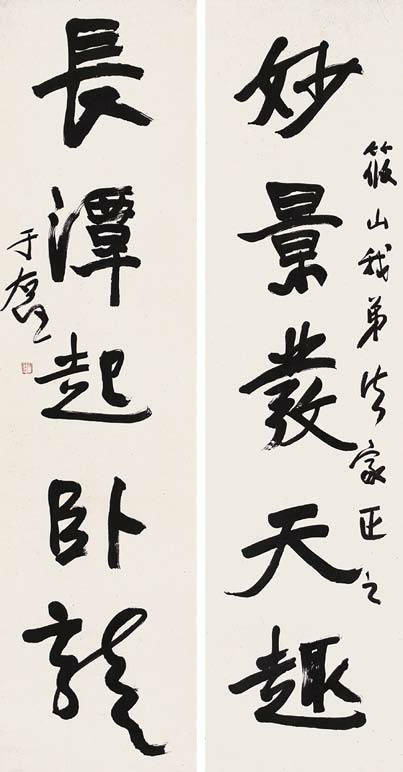 妙景發天趣
筱山我弟法家正之
長潭起臥龍
于右任